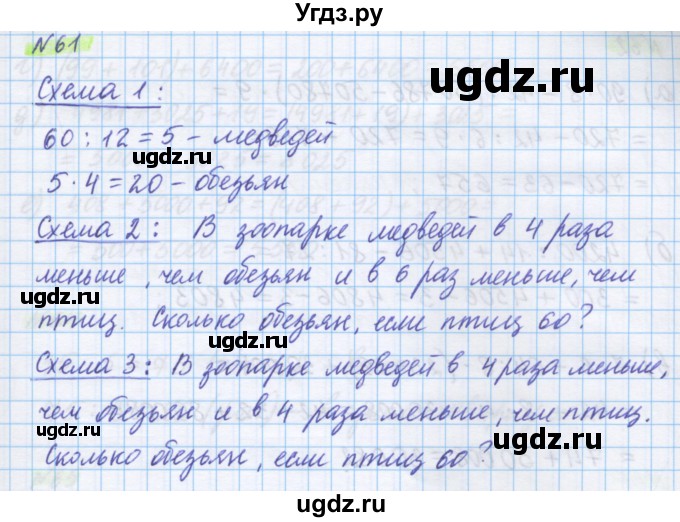 Угдз.ру
№61
Схема 1:
uгдз.ru
60 : 12 = 5 - медведей
uгдз.ru
5 · 4 = 20 - обезьян
uгдз.ru
Схема 2: В зоопарке медведей в 4 раза
меньше, чем обезьян и в 6 раз меньше, чем
uгдз.ru
uгдз.ru
птиц. Сколько обезьян, если птиц 60?
uгдз.ru
Схема 3: В зоопарке медведей в 4 раза меньше,
uгдз.ru
чем обезьян и в 4 раза меньше, чем птиц.
uгдз.ru
Сколько обезьян, если птиц 60?
uгдз.ru